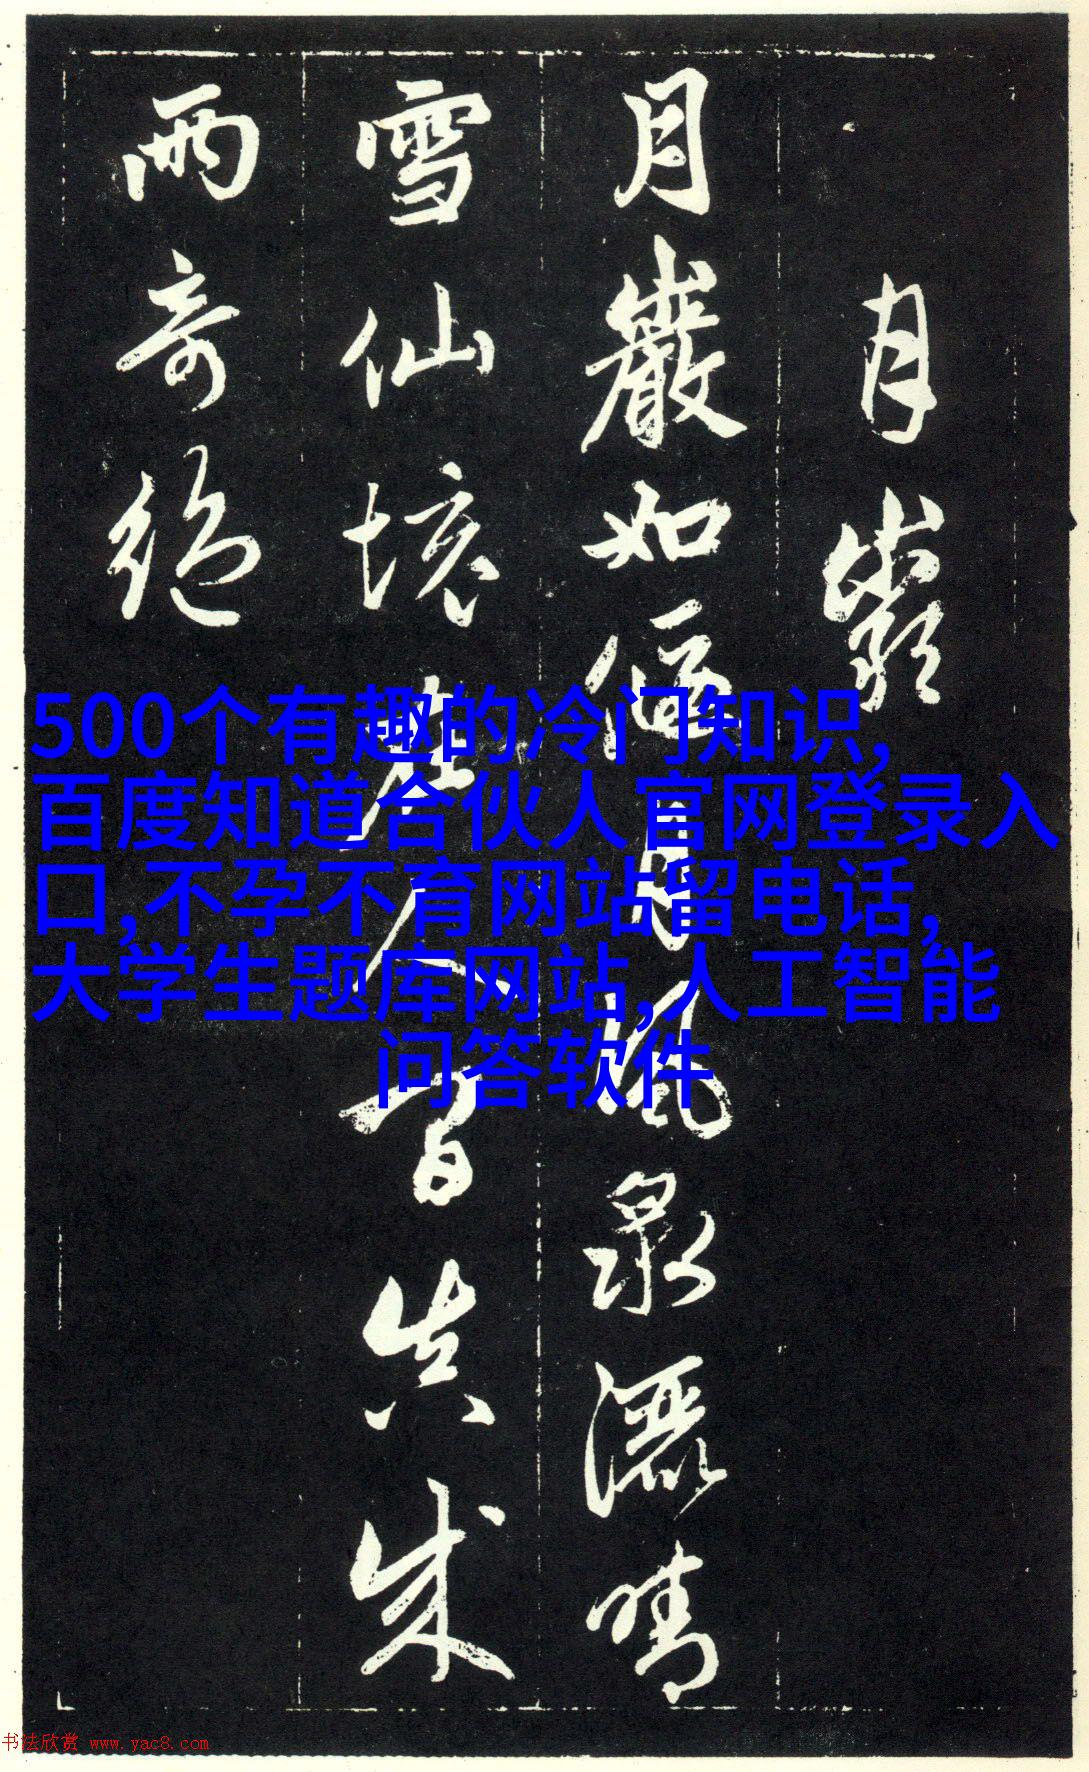 月巖
月巖如偃月風泉灑晴
雪仙境在人間真成
兩奇絕
500个有趣的冷门知识,
百度知道合伙人官网登录入
口,不孕不育网站留电话,
大学生题库网站,人工智能
问答软件
书法欣赏 www.yac8.com